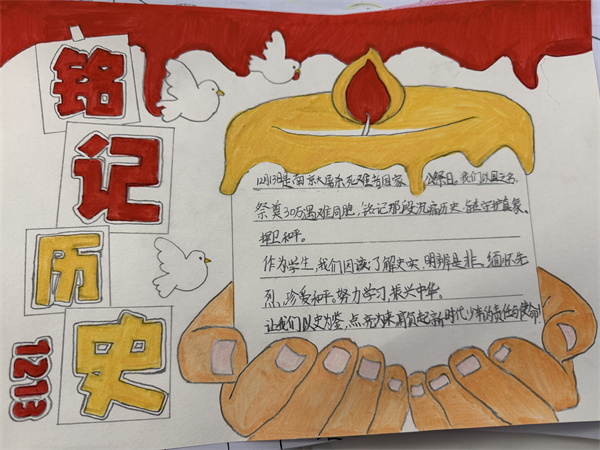 铭
记
历
史
1213
12月13日是南京大屠杀死难者国家 公祭日。我们以国之名,
祭奠30万遇难同胞,铭记那段沉痛历史,守护真象、
捍卫和平。
作为学生,我们因该了解史实,明辨是非、缅怀先
烈、珍爱和平。努力学习,振兴中华。
让我们以史为鉴,点亮未来肩负起新时代少年的责任与使命!